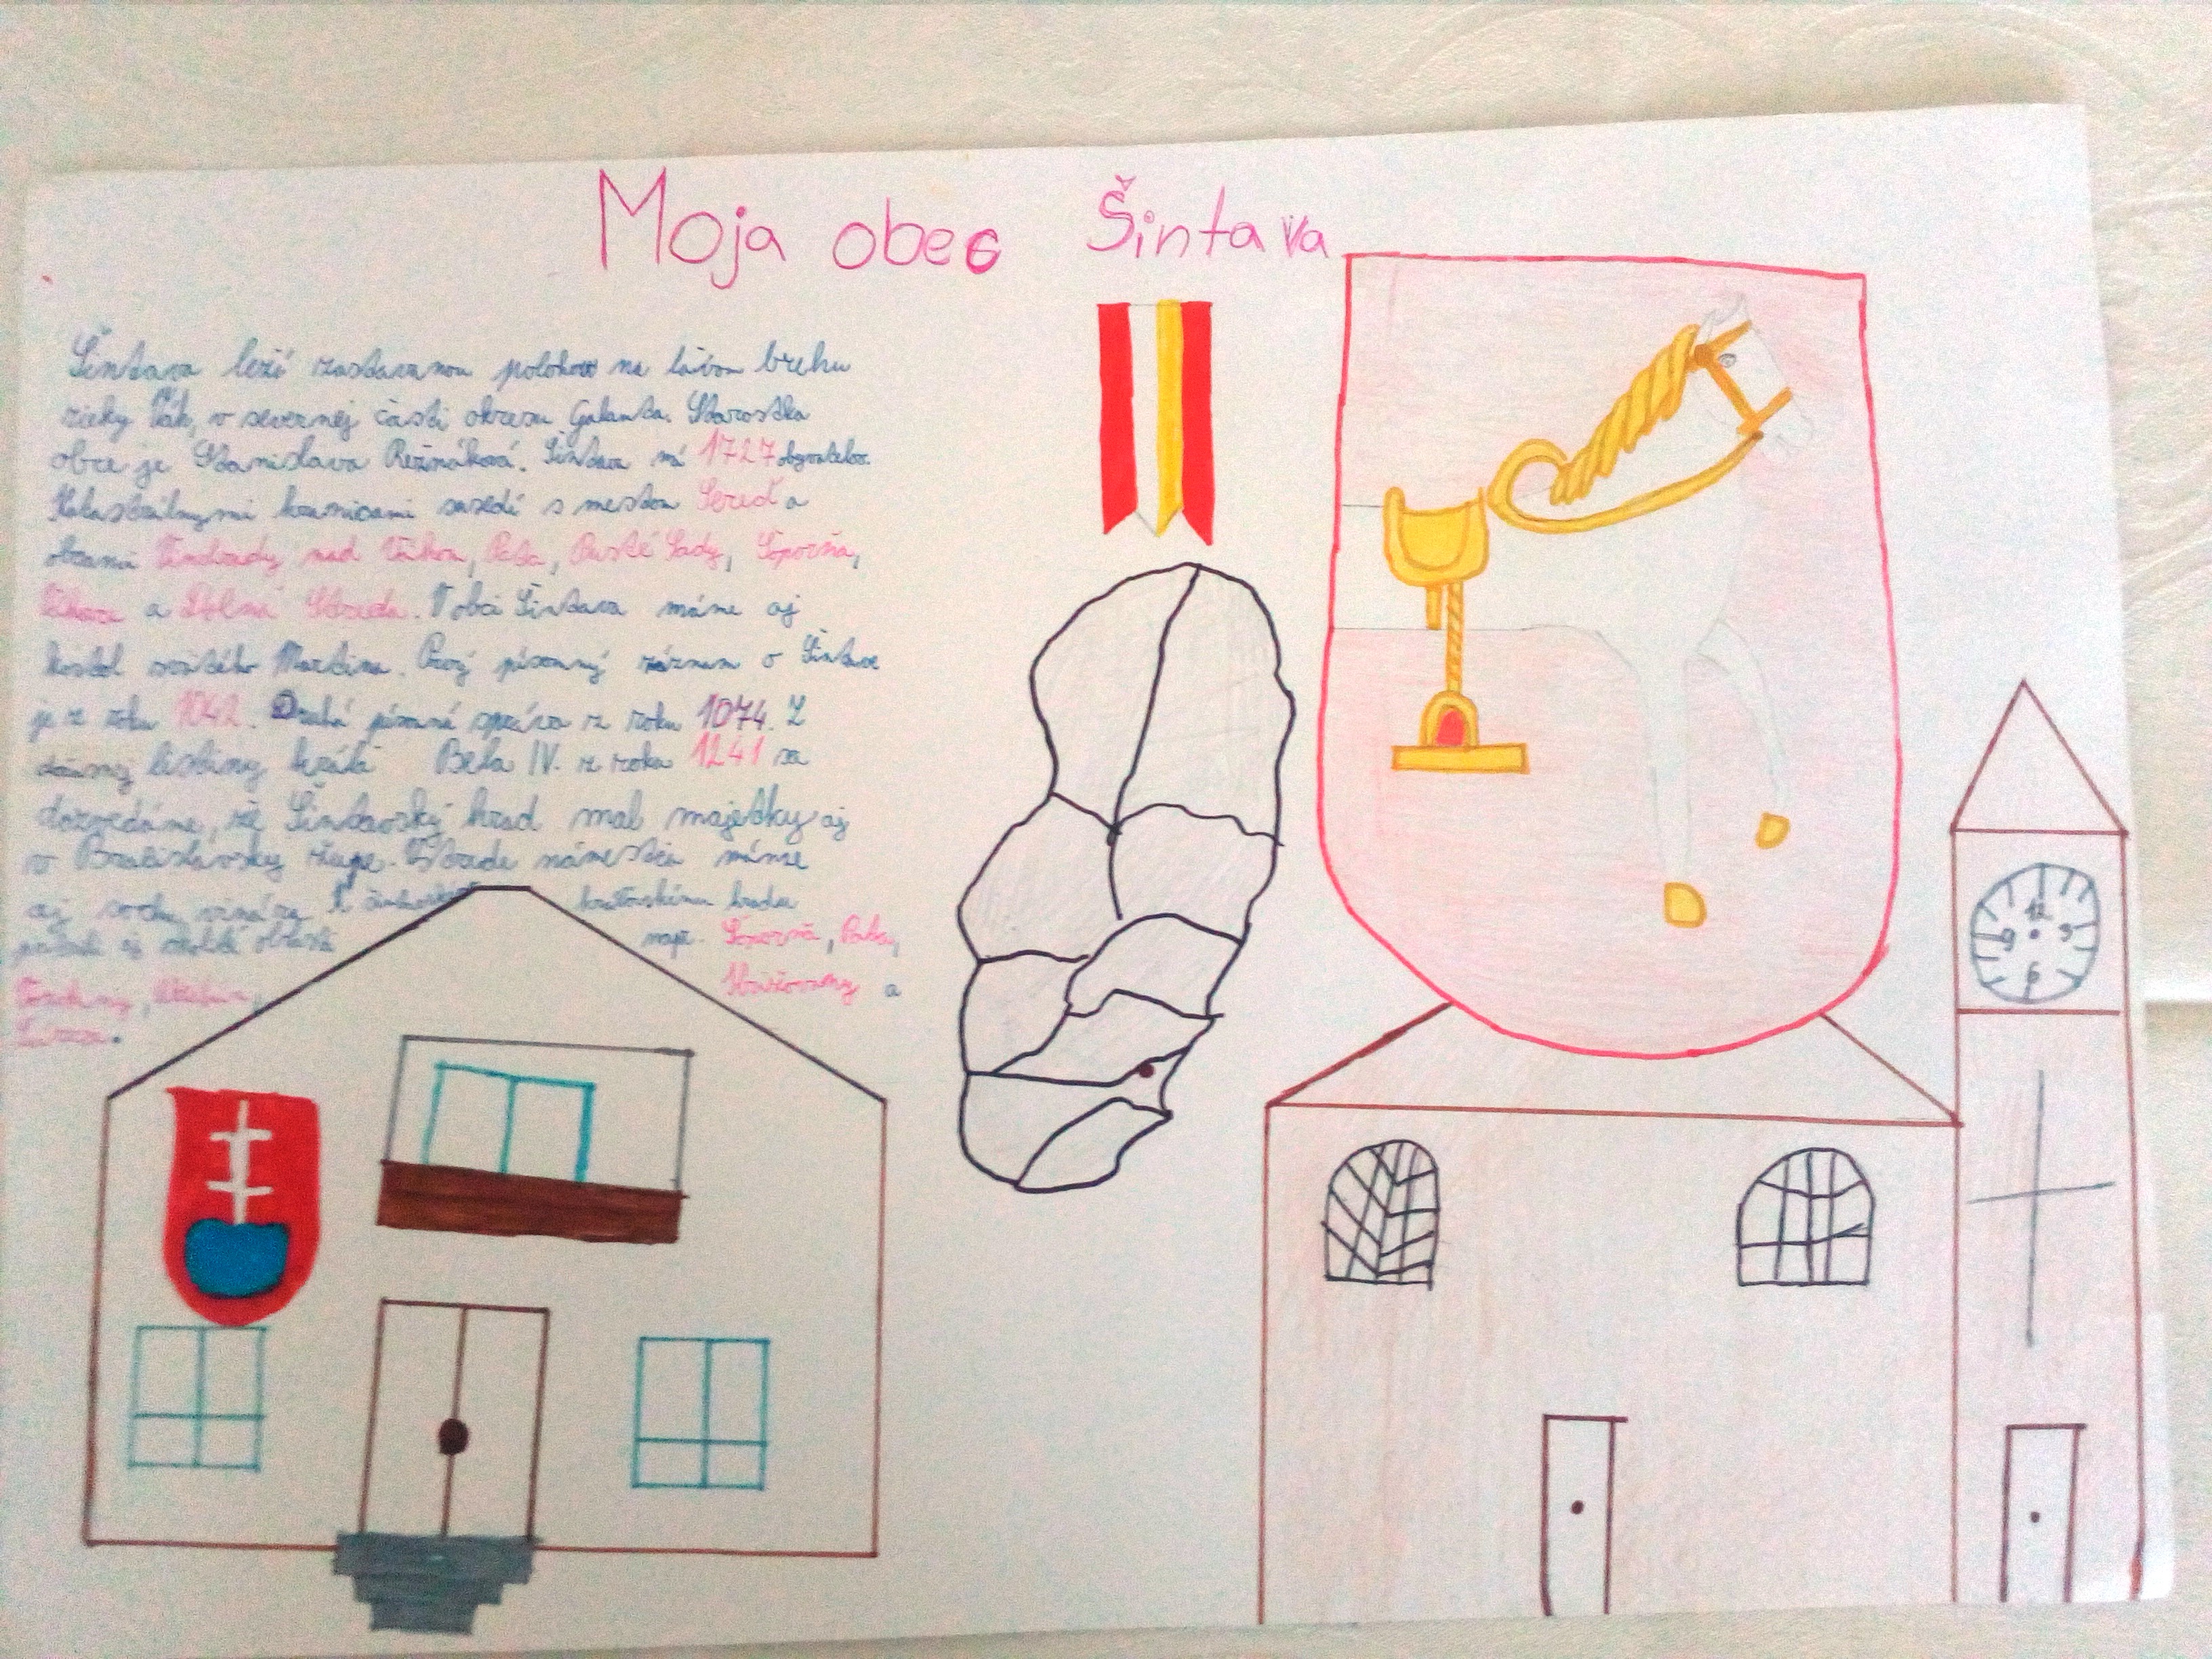 Moja obec Šintava
Šintava leží zastavanou polohou na ľavom brehu
rieky Váh, v severnej časti okresu Galanta. Starostka
obce je Stanislava Režnáková. Šintava má 1727 obyvateľov.
Katastrálnymi hranicami susedí s mestom Sereď a
obcami Vinohrady nad Váhom, Pata, Pusté Sady, Šoporňa,
a Dolná Streda. V obci Šintava máme aj
kostol svätého Martina. Prvý písomný záznam o Šintave
je z roku 1042. Druhá písomná správa z roku 1074. Z
listiny kráľa Bela IV. z roku 1241 sa
dozvedáme, že Šintavský hrad mal majetky aj
v Bratislavskej župe. V strede námestia máme
aj sochu vinára. K hradu
aj okolité oblasti napr. Šoporňa, Pata,
12
9 3
6